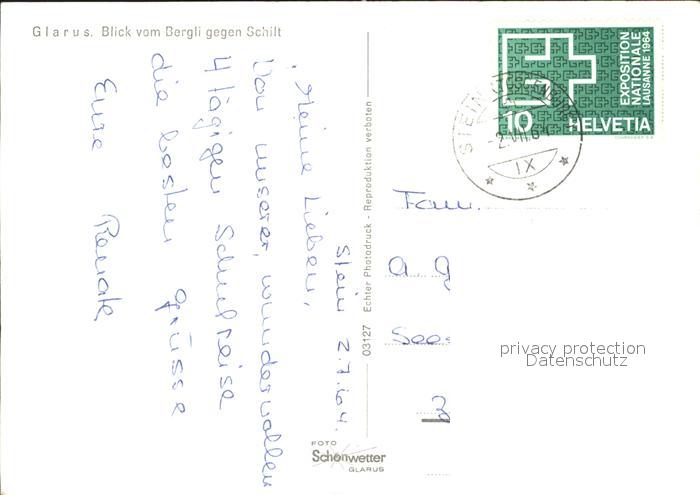 Glarus. Blick vom Bergli gegen Schilt
Stein 2.7.64.
Meine Lieben,
Von unserer, wundervollen
4 tägigen Schulreise
die besten grüsse
Eure Renate
03127 Echter Photodruck - Reproduktion verboten
FOTO
Schönwetter
GLARUS
EXPOSITION
NATIONALE
LAUSANNE 1964
10 HELVETIA
STEIN
-2.VII.64
IX
Fam.
a g
See
privacy protection
Datenschutz